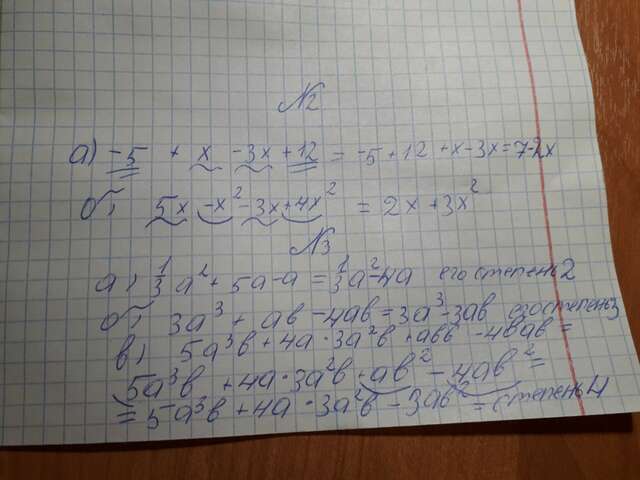 №2
а) -5 + x -3x +12 = -5+12 +x-3x=7-2x
б) 5x -x² -3x +4x² = 2x +3x²
№3
а) 1/3 a² + 5a -a = 1/3 a² -4a его степень 2
б) 3a³ + ab -4ab = 3a³ -3ab его степень 3
в) 5a³b +4a · 3a²b +abb -4bab =
5a³b +4a·3a²b +ab² -4ab² =
= 5a³b +4a · 3a²b -3ab² = степень 4